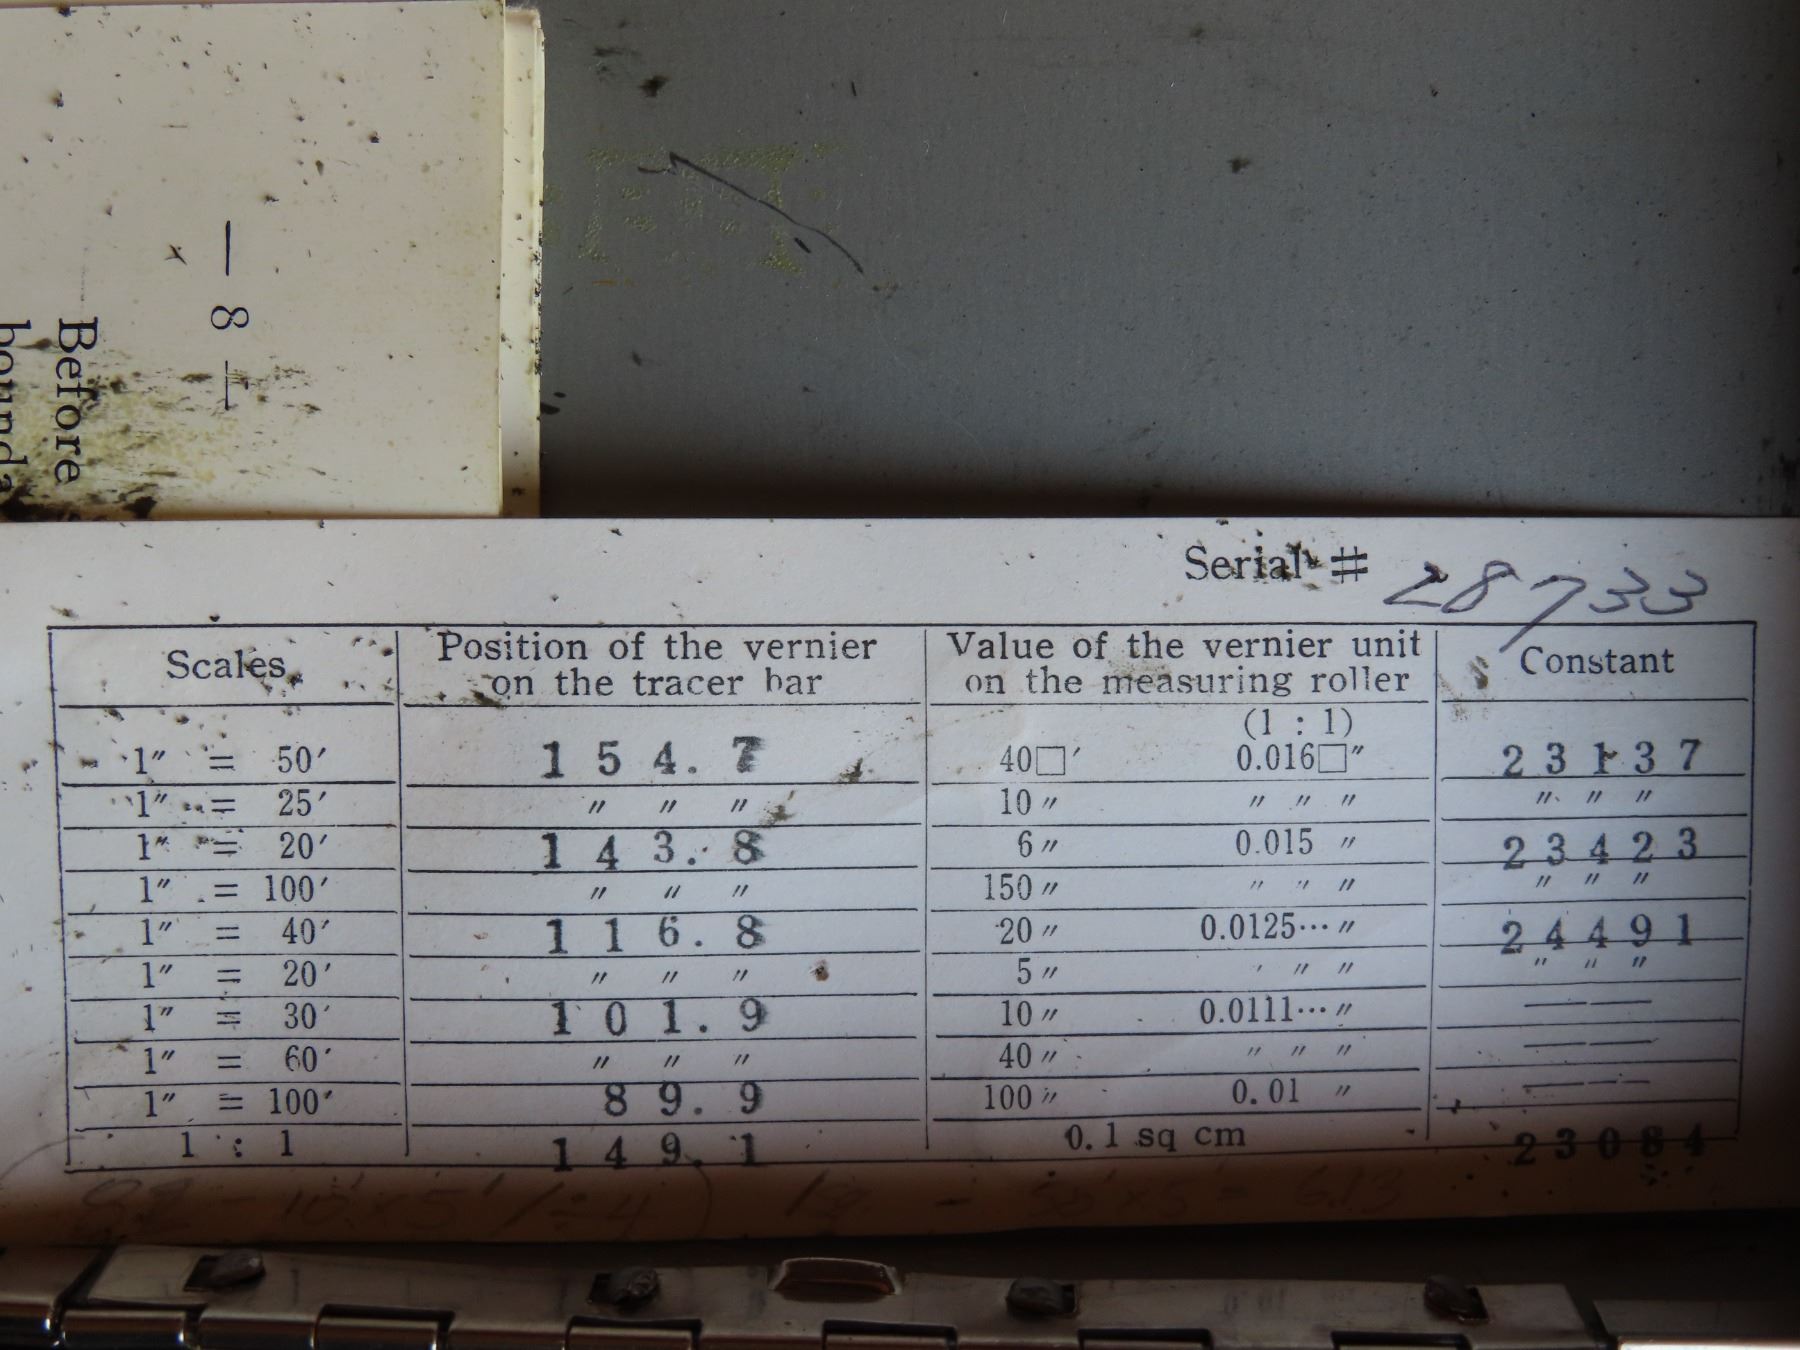 — 8 —
Before
Serial # 28733
Scales Position of the vernier on the tracer bar Value of the vernier unit on the measuring roller Constant
(1 : 1)
1″ = 50′ 154.7 40□′ 0.016□″ 23137
1″ = 25′ ″ ″ ″ 10 ″ ″ ″ ″ ″ ″ ″
1″ = 20′ 143.8 6 ″ 0.015 ″ 23423
1″ = 100′ ″ ″ ″ 150 ″ ″ ″ ″ ″ ″ ″
1″ = 40′ 116.8 20 ″ 0.0125··· ″ 24491
1″ = 20′ ″ ″ ″ 5 ″ ″ ″ ″ ″ ″ ″
1″ = 30′ 101.9 10 ″ 0.0111··· ″ ——
1″ = 60′ ″ ″ ″ 40 ″ ″ ″ ″ ——
1″ = 100′ 89.9 100 ″ 0.01 ″ ——
1 : 1 149.1 0.1 sq cm 23084